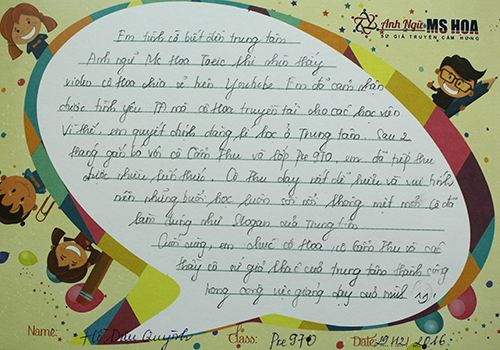 Anh Ngữ MS HOA
SỨ GIẢ TRUYỀN CẢM HỨNG
Em tình cờ biết đến trung tâm
Anh ngữ Ms Hoa Toeic khi nhìn thấy
video cô Hoa chia sẻ trên Youtube. Em đã cảm nhận
được tình yêu TA mà cô Hoa truyền tải cho các học viên
Vì thế, em quyết định đăng kí học ở Trung tâm. Sau 2
tháng gắn bó với cô Cẩm Thu và lớp Pre 970, em đã tiếp thu
được nhiều kiến thức. Cô Thu dạy rất dễ hiểu và vui tính
nên những buổi học luôn sôi nổi không mệt mỏi. Cô đã
làm đúng như Slogan của Trung tâm
Cuối cùng, em chúc cô Hoa, cô Cẩm Thu và các
thầy cô sứ giả khác của trung tâm thành công
trong công việc giảng dạy của mình
Name: Hồ Diệu Quỳnh Class: Pre 970 Date: 19/12/2016